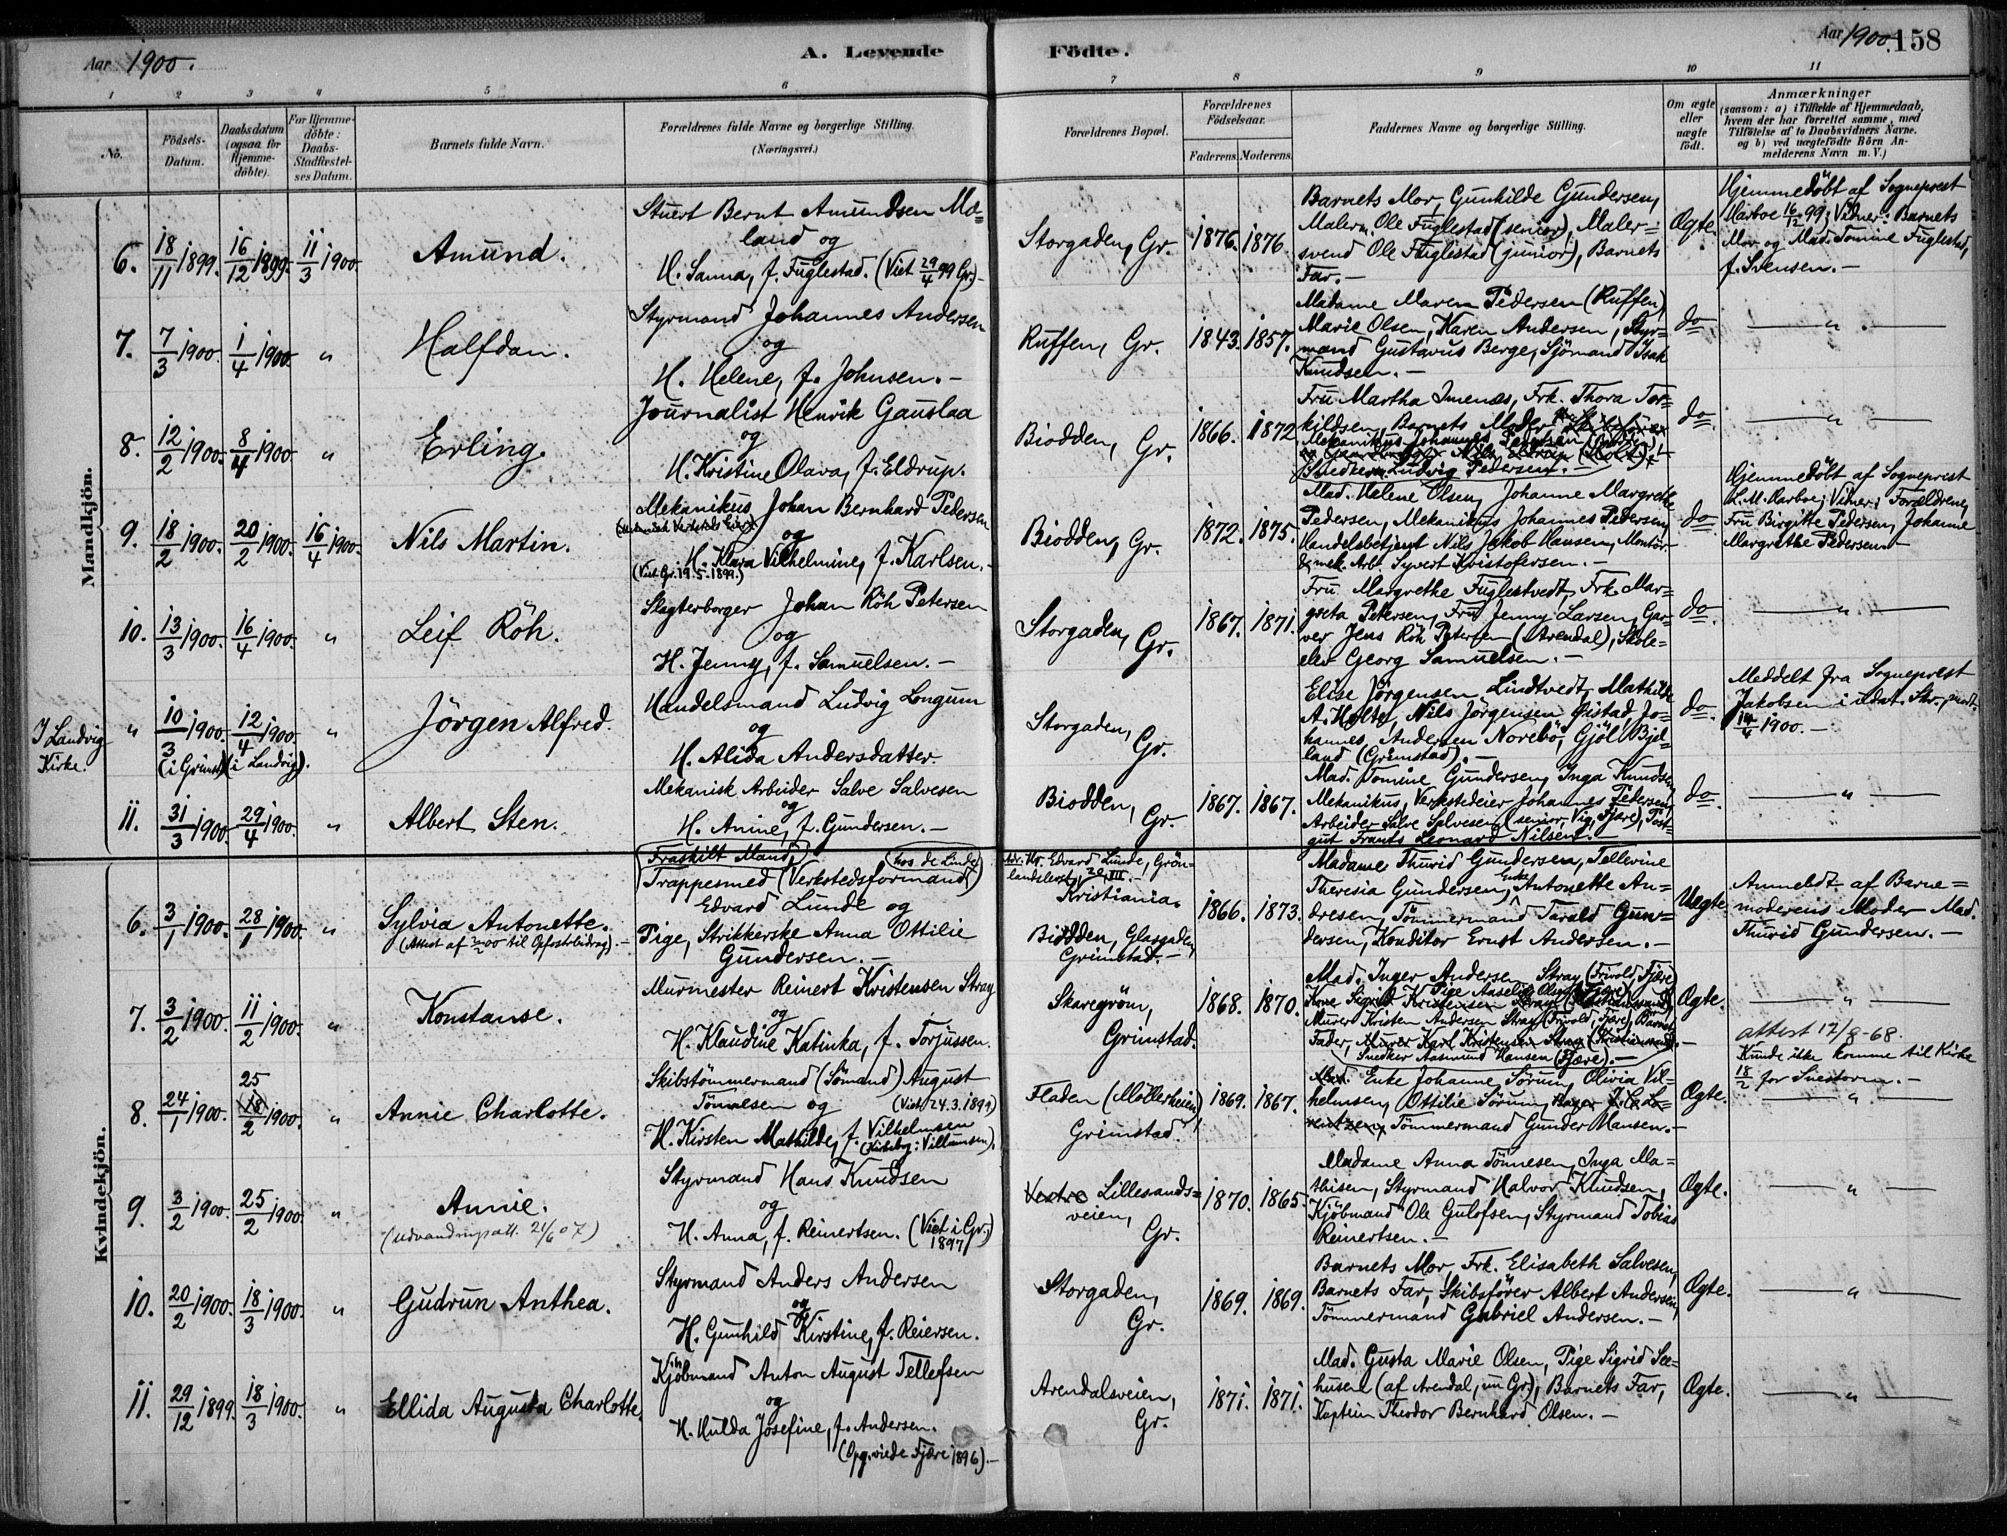 Aar 1900.
A. Levende Födte.
Aar 1900.
158
1 2 3 4 5 6 7 8 9 10 11
No.
Födsels-Datum.
Daabsdatum (ogsaa for Hjemmedöbte).
For Hjemmedöbte: Daabs-Stadfæstelses Datum.
Barnets fulde Navn.
Forældrenes fulde Navne og borgerlige Stilling. (Næringsvei.)
Forældrenes Bopæl.
Forældrenes Födselsaar.
Faderens. Moderens.
Faddernes Navne og borgerlige Stilling.
Om ægte eller uægte födt.
Anmærkninger
(saasom: a) i Tilfælde af Hjemmedaab, hvem der har forrettet samme, med Tilföielse af to Daabsvidners Navne, og b) ved uægtefödte Börn Anmelderens Navn m. V.)
Mandkjön.
6. 18/11 1899. 16/12 1899. 11/3 1900
Amund.
Stuert Bernt Amundsen Mæ=
land og
H. Sanna, f. Fuglestad. (Viet 29/4 99 Gr.) -
Storgaden, Gr.
1876. 1876.
Barnets Mor, Gunhilde Gundersen,
Maler Ole Fuglestad (senior), Maler=
svend Ole Fuglestad (junior), Barnets
Far. -
Ægte.
Hjemmedöbt af Sogneprest
Aarboe 16/12 99; Vidner: Barnets
Mor og Mad. Tomine Fuglestad,
f. Svensen. -
7. 7/3 1900. 1/4 1900. "
Halfdan.
Styrmand Johannes Andersen
og
H. Helene, f. Johnsen. -
Ruffen, Gr.
1843. 1857.
Madame Maren Pedersen (Ruffen)
Marie Olsen, Karen Andersen, Styr=
mand Gustavus Berge, Sjömand Isak
Knudsen. -
do.
— " —
8. 12/2 1900. 8/4 1900. "
Erling.
Journalist Henrik Gauslaa
og
H. Kristine Olava, f. Eldrup.
Biodden, Gr.
1866. 1872
Fru Martha Imenæs, Frk. Thora Tor=
kildsen, Barnets Moder
Mekanikus Johannes Pedersen
Snedker Ludvig Pedersen. -
do.
— " —
9. 18/2 1900. 20/2 1900. 16/4 1900.
Nils Martin.
Mekanikus Johan Bernhard Pedersen
og
H. Klara Vilhelmine, f. Karlsen. -
(Viet Gr. 19.5.1899.)
Biodden, Gr.
1872. 1875.
Mad. Helene Olsen, Johanne Margrethe
Pedersen, Mekanikus Johannes Pedersen,
Handelsbetjent Nils Jakob Hansen, Montör
& mek. Arb. Syvert Kristofersen. -
do.
Hjemmedöbt af Sogneprest
L. M. Aarboe; Vidner: Forældrene,
Fru Birgitte Pedersen, Johanne
Margrethe Pedersen. -
10. 13/3 1900. 16/4 1900. "
Leif Röh.
Slagterborger Johan Röh Petersen
og
H. Jenny, f. Samuelsen. -
Storgaden, Gr.
1867. 1871.
Fru Margrethe Fuglestvedt, Frk. Mar=
greta Petersen, Fru Jenny Larsen, Gar=
ver Jens Röh Petersen (Arendal), Skole=
elev Georg Samuelsen. -
do.
— " —
I Landvig
Kirke.
" 10/3 1900. (i Grimst.) 12/4 1900. (i Landvig). "
Jörgen Alfred.
Handelsmand Ludvig Longum
og
H. Alida Andersdatter.
Storgaden, Gr.
Elise Jörgensen Lindtvedt, Mathilde
A. Holte, Nils Jörgensen Øistad, Jo=
hannes Andersen Norebö, Gjöl Bjel=
land (Grimstad). -
do.
Meddelt fra Sogneprest
Jakobsen i udat. Skr., 
14/4 1900. -
11. 31/3 1900. 29/4 1900. "
Albert Sten.
Mekanisk Arbeider Salve Salvesen
og
H. Anine, f. Gundersen. -
Biodden, Gr.
1867. 1867.
Mad. Tomine Gundersen, Inga Knudsen,
Mekanikus, Verkstedeier Johannes Pedersen,
Arbeider Salve Salvesen (senior, Vig, Fjære), Post=
gut Frants Leonard Nilsen. -
do.
— " —
Kvindekjön.
6. 3/1 1900. 28/1 1900. "
Sylvia Antonette.
(Attest af til Opfostrbidrag). -
Fraskilt Mand, (hos de Linde)
Trappesmed (Verkstedsformand)
Edvard Lunde og
Pige, Strikkerske Anna Ottilie
Gundersen. -
Adr. Hr. Edvard Lunde, Grön=
landslerst, 20, III. -
Kristiania.
Biodden, Glasgaden,
Grimstad. -
1866. 1873.
Madame Thurid Gundersen, Tellevine
Theresia Gundersen, Enke Antonette An=
dresen, Tömmermand Tarald Gun=
dersen, Konditor Ernst Andersen. -
Uegte.
Anmeldt af Barne=
moderens Moder Mad.
Thurid Gundersen. -
7. 3/2 1900. 11/2 1900. "
Konstanse.
Murmester Reinert Kristensen Stray
og
H. Klaudine Katinka, f. Torjussen.
Skaregröm,
Grimstad.
1868. 1870.
Mad. Inger Andersen Stray (Frivold, Fjære)
Pige Aaselie Olsen (Fjære)
Kone Sigrid Kristensen Stray (Kristianssand)
Murer Kristen Andersen Stray (Frivold, Fjære), Barnets
Fader, Murer Karl Kristensen Stray (Kristianssand). -
Snedker Aasmund Hansen (Fjære). -
Ægte.
— " —
attest 12/8-68.
8. 24/1 1900. 25 18/2 1900. "
Annie Charlotte.
Skibstömmermand (Sömand) August
Tönnesen og (Viet 24.3.1899)
H. Kirsten Mathilde, f. Vilhelmsen
(Kirkebog: Villumsen).
Fladen (Möllerheien),
Grimstad.
1869. 1867.
Mad. Enke Johanne Sörum, Olivia Vil=
helmsen, Ottilie Sörum, Lo=
rentzen, Tömmermand Gunder Hansen. -
Ægte.
Kunde ikke komme til Kirke
18/2 for Snestorm. -
— " —
9. 3/2 1900. 25/2 1900. "
Annie.
(udvandringsatt. 21/6 07)
Styrmand Hans Knudsen
og
H. Anna, f. Reinertsen. (Viet i Gr. 1897)
Vestre Lillesands=
veien,
Gr.
1870. 1865.
Madame Anna Tönnesen, Inga Ma=
thisen, Styrmand Halvor Knudsen,
Kjöbmand Ole Gulofsen, Styrmand Tobias
Reinertsen. -
Ægte.
— " —
10. 20/2 1900. 18/3 1900. "
Gudrun Anthea.
Styrmand Anders Andersen
og
H. Gunhild Kirstine, f. Reiersen.
Storgaden,
Gr.
1869. 1869.
Barnets Mor, Frk. Elisabeth Salvesen,
Barnets Far, Skibsförer Albert Andersen,
Tömmermand Gabriel Andersen. -
Ægte.
— " —
11. 29/12 1899. 18/3 1900. "
Ellida Augusta Charlotte.
Kjöbmand Anton August Tellefsen
og
H. Hulda Josefine, f. Andersen.
(Opg. viede Fjære 1896). -
Arendalsveien,
Gr.
1871. 1871.
Mad. Gusta Marie Olsen, Pige Sigrid See=
husen (af Arendal, nu Gr), Barnets Far,
Kaptein Theodor Bernhard Olsen. -
Ægte.
— " —